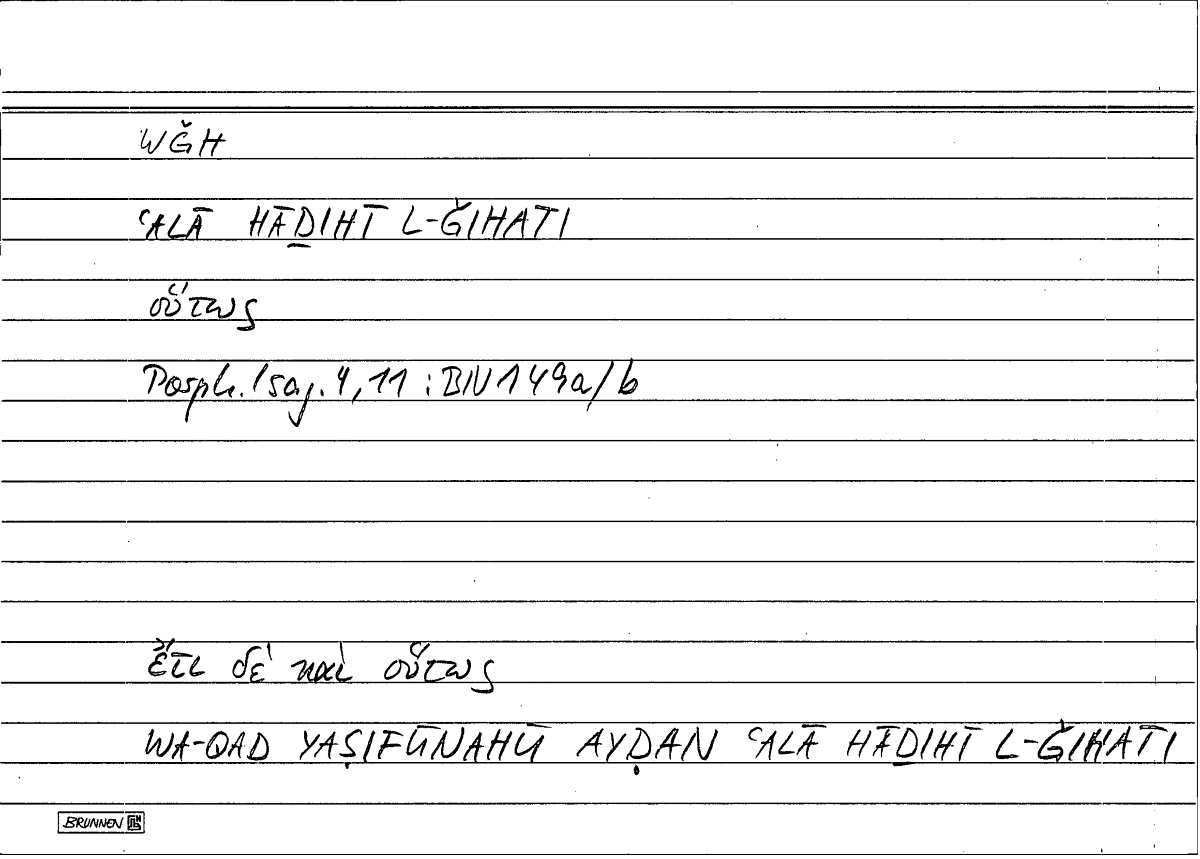 WǦH
ʿALĀ HĀḎIHĪ L-ǦIHATI
οὕτως
Porph. Isag. 4, 11 : BN 149a/b
ἔτι δὲ καὶ οὕτως
WA-QAD YAṢIFŪNAHŪ AYḌAN ʿALĀ HĀḎIHĪ L-ǦIHATI
BRUNNEN